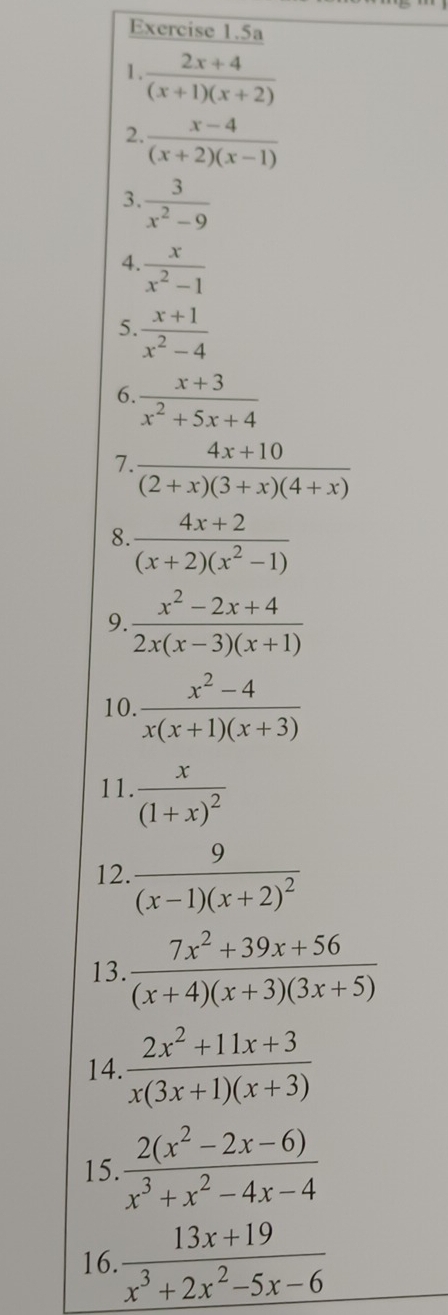 Exercise 1.5a
1. \frac{2x+4}{(x+1)(x+2)}
2. \frac{x-4}{(x+2)(x-1)}
3. \frac{3}{x^2-9}
4. \frac{x}{x^2-1}
5. \frac{x+1}{x^2-4}
6. \frac{x+3}{x^2+5x+4}
7. \frac{4x+10}{(2+x)(3+x)(4+x)}
8. \frac{4x+2}{(x+2)(x^2-1)}
9. \frac{x^2-2x+4}{2x(x-3)(x+1)}
10. \frac{x^2-4}{x(x+1)(x+3)}
11. \frac{x}{(1+x)^2}
12. \frac{9}{(x-1)(x+2)^2}
13. \frac{7x^2+39x+56}{(x+4)(x+3)(3x+5)}
14. \frac{2x^2+11x+3}{x(3x+1)(x+3)}
15. \frac{2(x^2-2x-6)}{x^3+x^2-4x-4}
16. \frac{13x+19}{x^3+2x^2-5x-6}